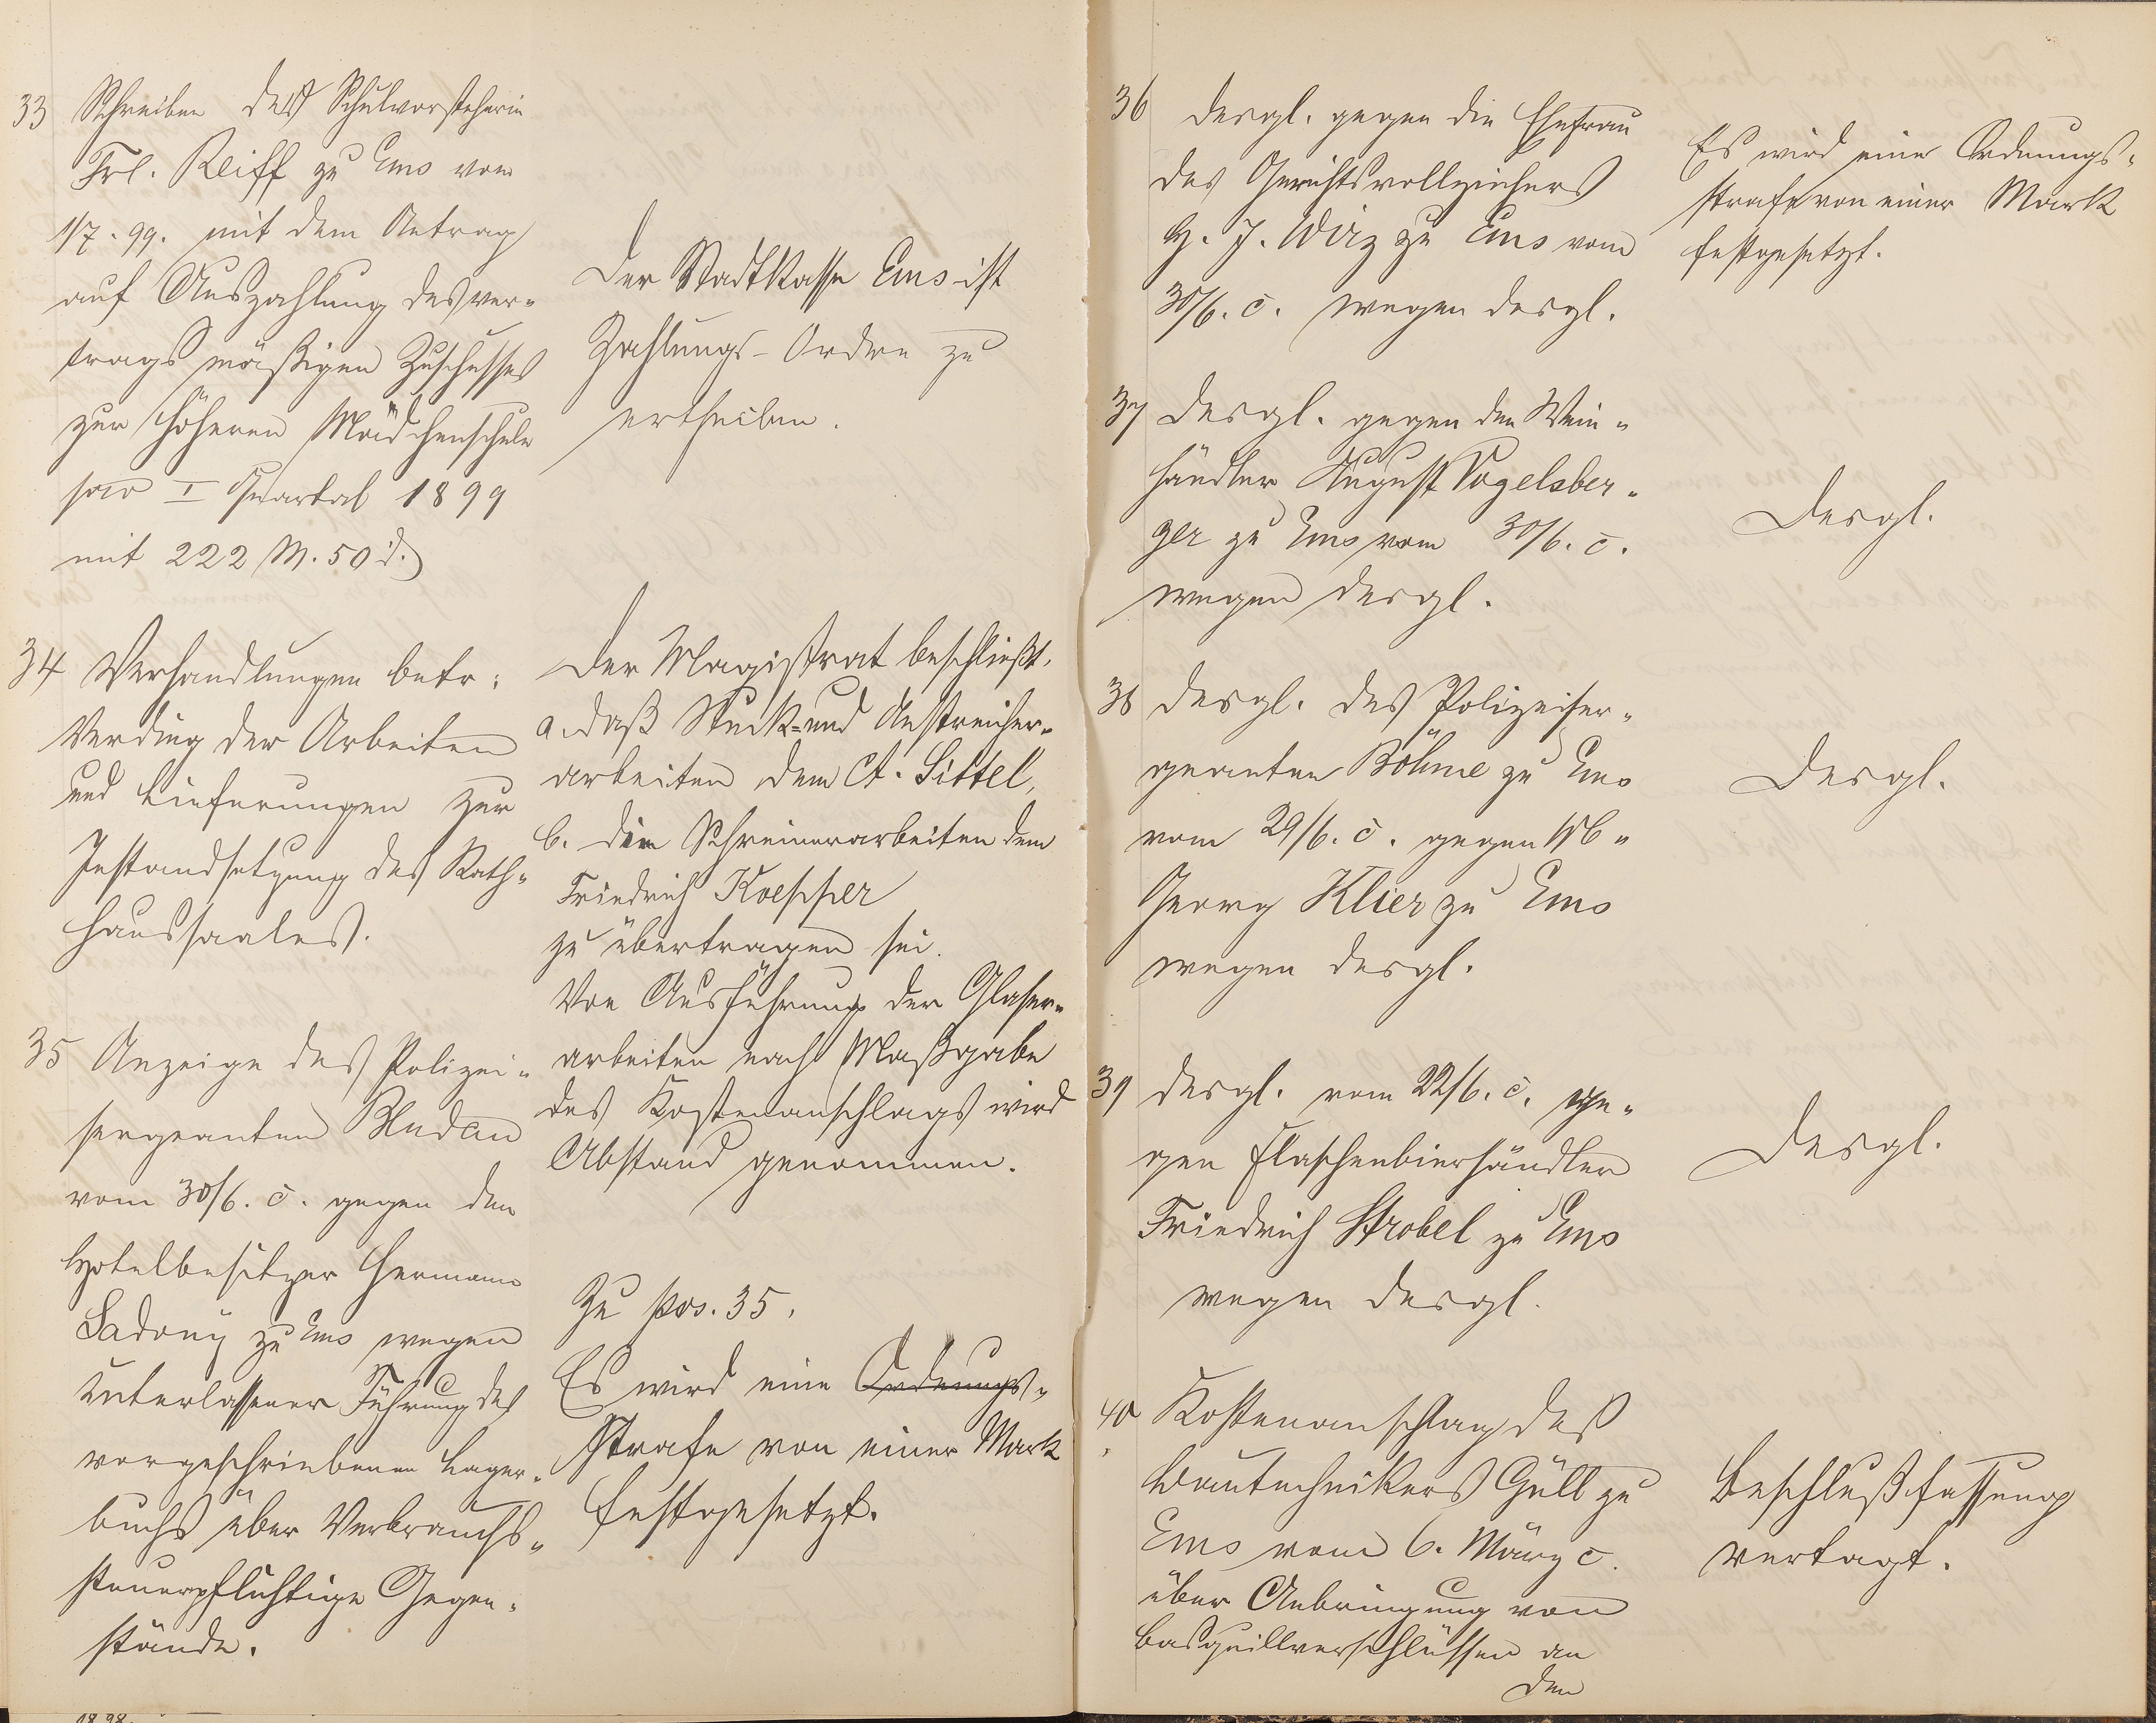 33 Schreiben der Schulvorsteherin
Frl. Reiff zu Ems vom
1/7. 99. mit dem Antrag
auf Auszahlung des ver-
trags mäßigen Zuschusses
zur höheren Mädchenschule
pro I Quartal 1899
mit 222 M. 50 d.
Der Stadtkasse Ems ist
Zahlungs-Ordre zu
ertheilen.
34 Verhandlungen betr.
Verding der Arbeiten
und Lieferungen zur
Instandsetzung des Rath-
haussaales.
Der Magistrat beschließt,
a. daß Stuck- und Anstreicher-
arbeiten dem Ct. Sittel,
b. die Schreinerarbeiten dem
Friedrich Koepper
zu übertragen sei.
Von Ausführung der Glaser-
arbeiten nach Maßgabe
des Kostenanschlags wird
Abstand genommen.
35 Anzeige des Polizei-
sergeanten Bludau
vom 30/6. c. gegen den
Hotelbesitzer Hermann
Sadony zu Ems wegen
unterlassener Führung des
vorgeschriebenen Lager-
buchs über Verbrauchs-
steuerpflichtige Gegen-
stände.
Zu pos. 35.
Es wird eine Ordnungs-
Strafe von einer Mark
festgesetzt.
1898.
36 desgl. gegen die Ehefrau
des Gerichtsvollziehers
H. J. Wirz zu Ems vom
30/6. c. wegen desgl.
Es wird eine Ordnungs-
strafe von einer Mark
festgesetzt.
37 desgl. gegen den Wein-
händler August Vogelsber-
ger zu Ems vom 30/6. c.
wegen desgl.
Desgl.
38 desgl. des Polizeiser-
geanten Böhme zu Ems
vom 29/6. c. gegen
Georg Klier zu Ems
wegen desgl.
Desgl.
39 desgl. vom 22/6. c. ge-
gen Flaschenbierhändler
Friedrich Strobel zu Ems
wegen desgl.
Desgl.
40 Kostenanschlag des
Bautechnikers Güll zu
Ems vom 6. März c.
über Anbringung von
Basquillverschlüssen an
den
Beschlußfassung
vertagt.